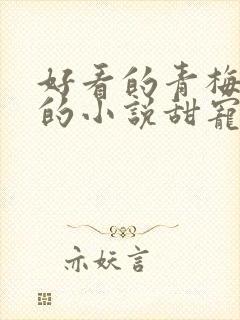 好看的青梅
的小说甜宠
亦妖言